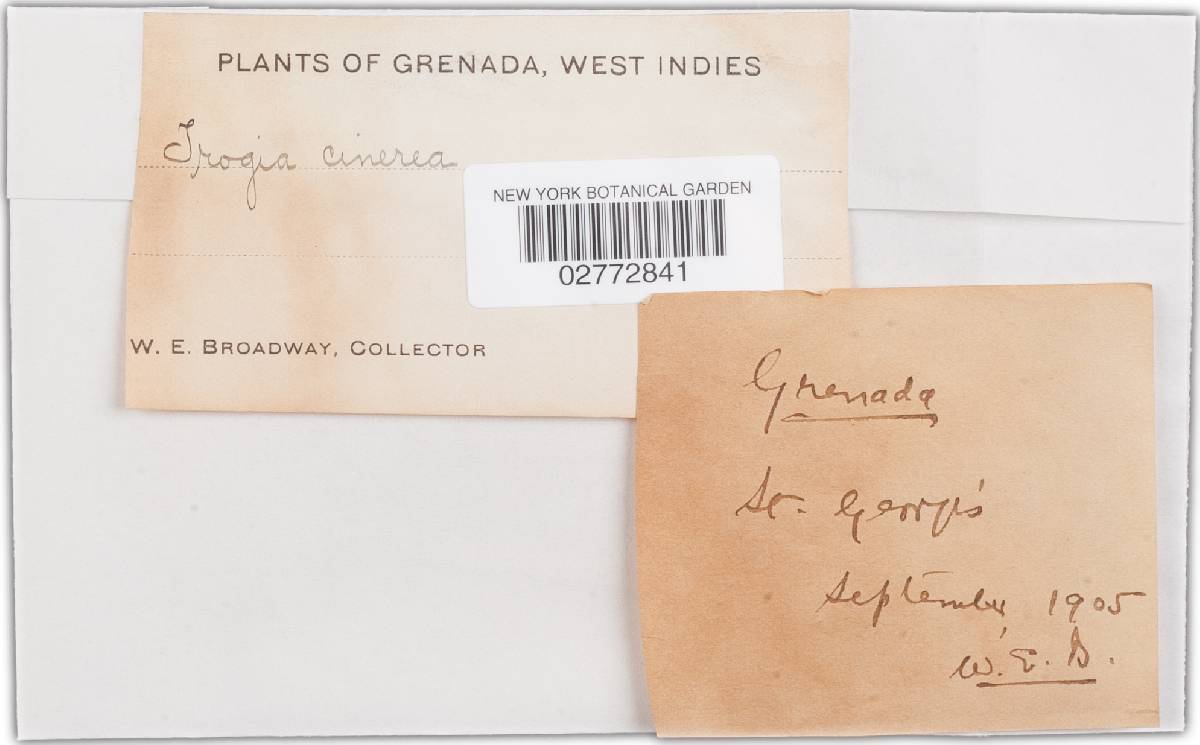 PLANTS OF GRENADA, WEST INDIES
Trogia cinerea
NEW YORK BOTANICAL GARDEN
02772841
W. E. BROADWAY, COLLECTOR
Grenada
St. George's
September, 1905
W. E. B.